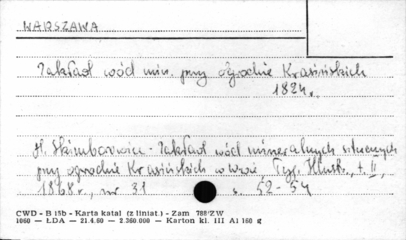 WARSZAWA
Zakład wód min. przy ogrodzie Krasińskich
1824 r.
H. Skimborowicz - Zakład wód mineralnych sztucznych
przy ogrodzie Krasińskich w Wwie, Tyg. Illustr., t. II,
1868 r., nr 31 s. 52-54
CWD - B 15b - Karta katal (z liniat.) - Zam 788/ZW
1060 - ŁDA - 21.4.60 - 2.360.000 - Karton kl. III A1 160 g